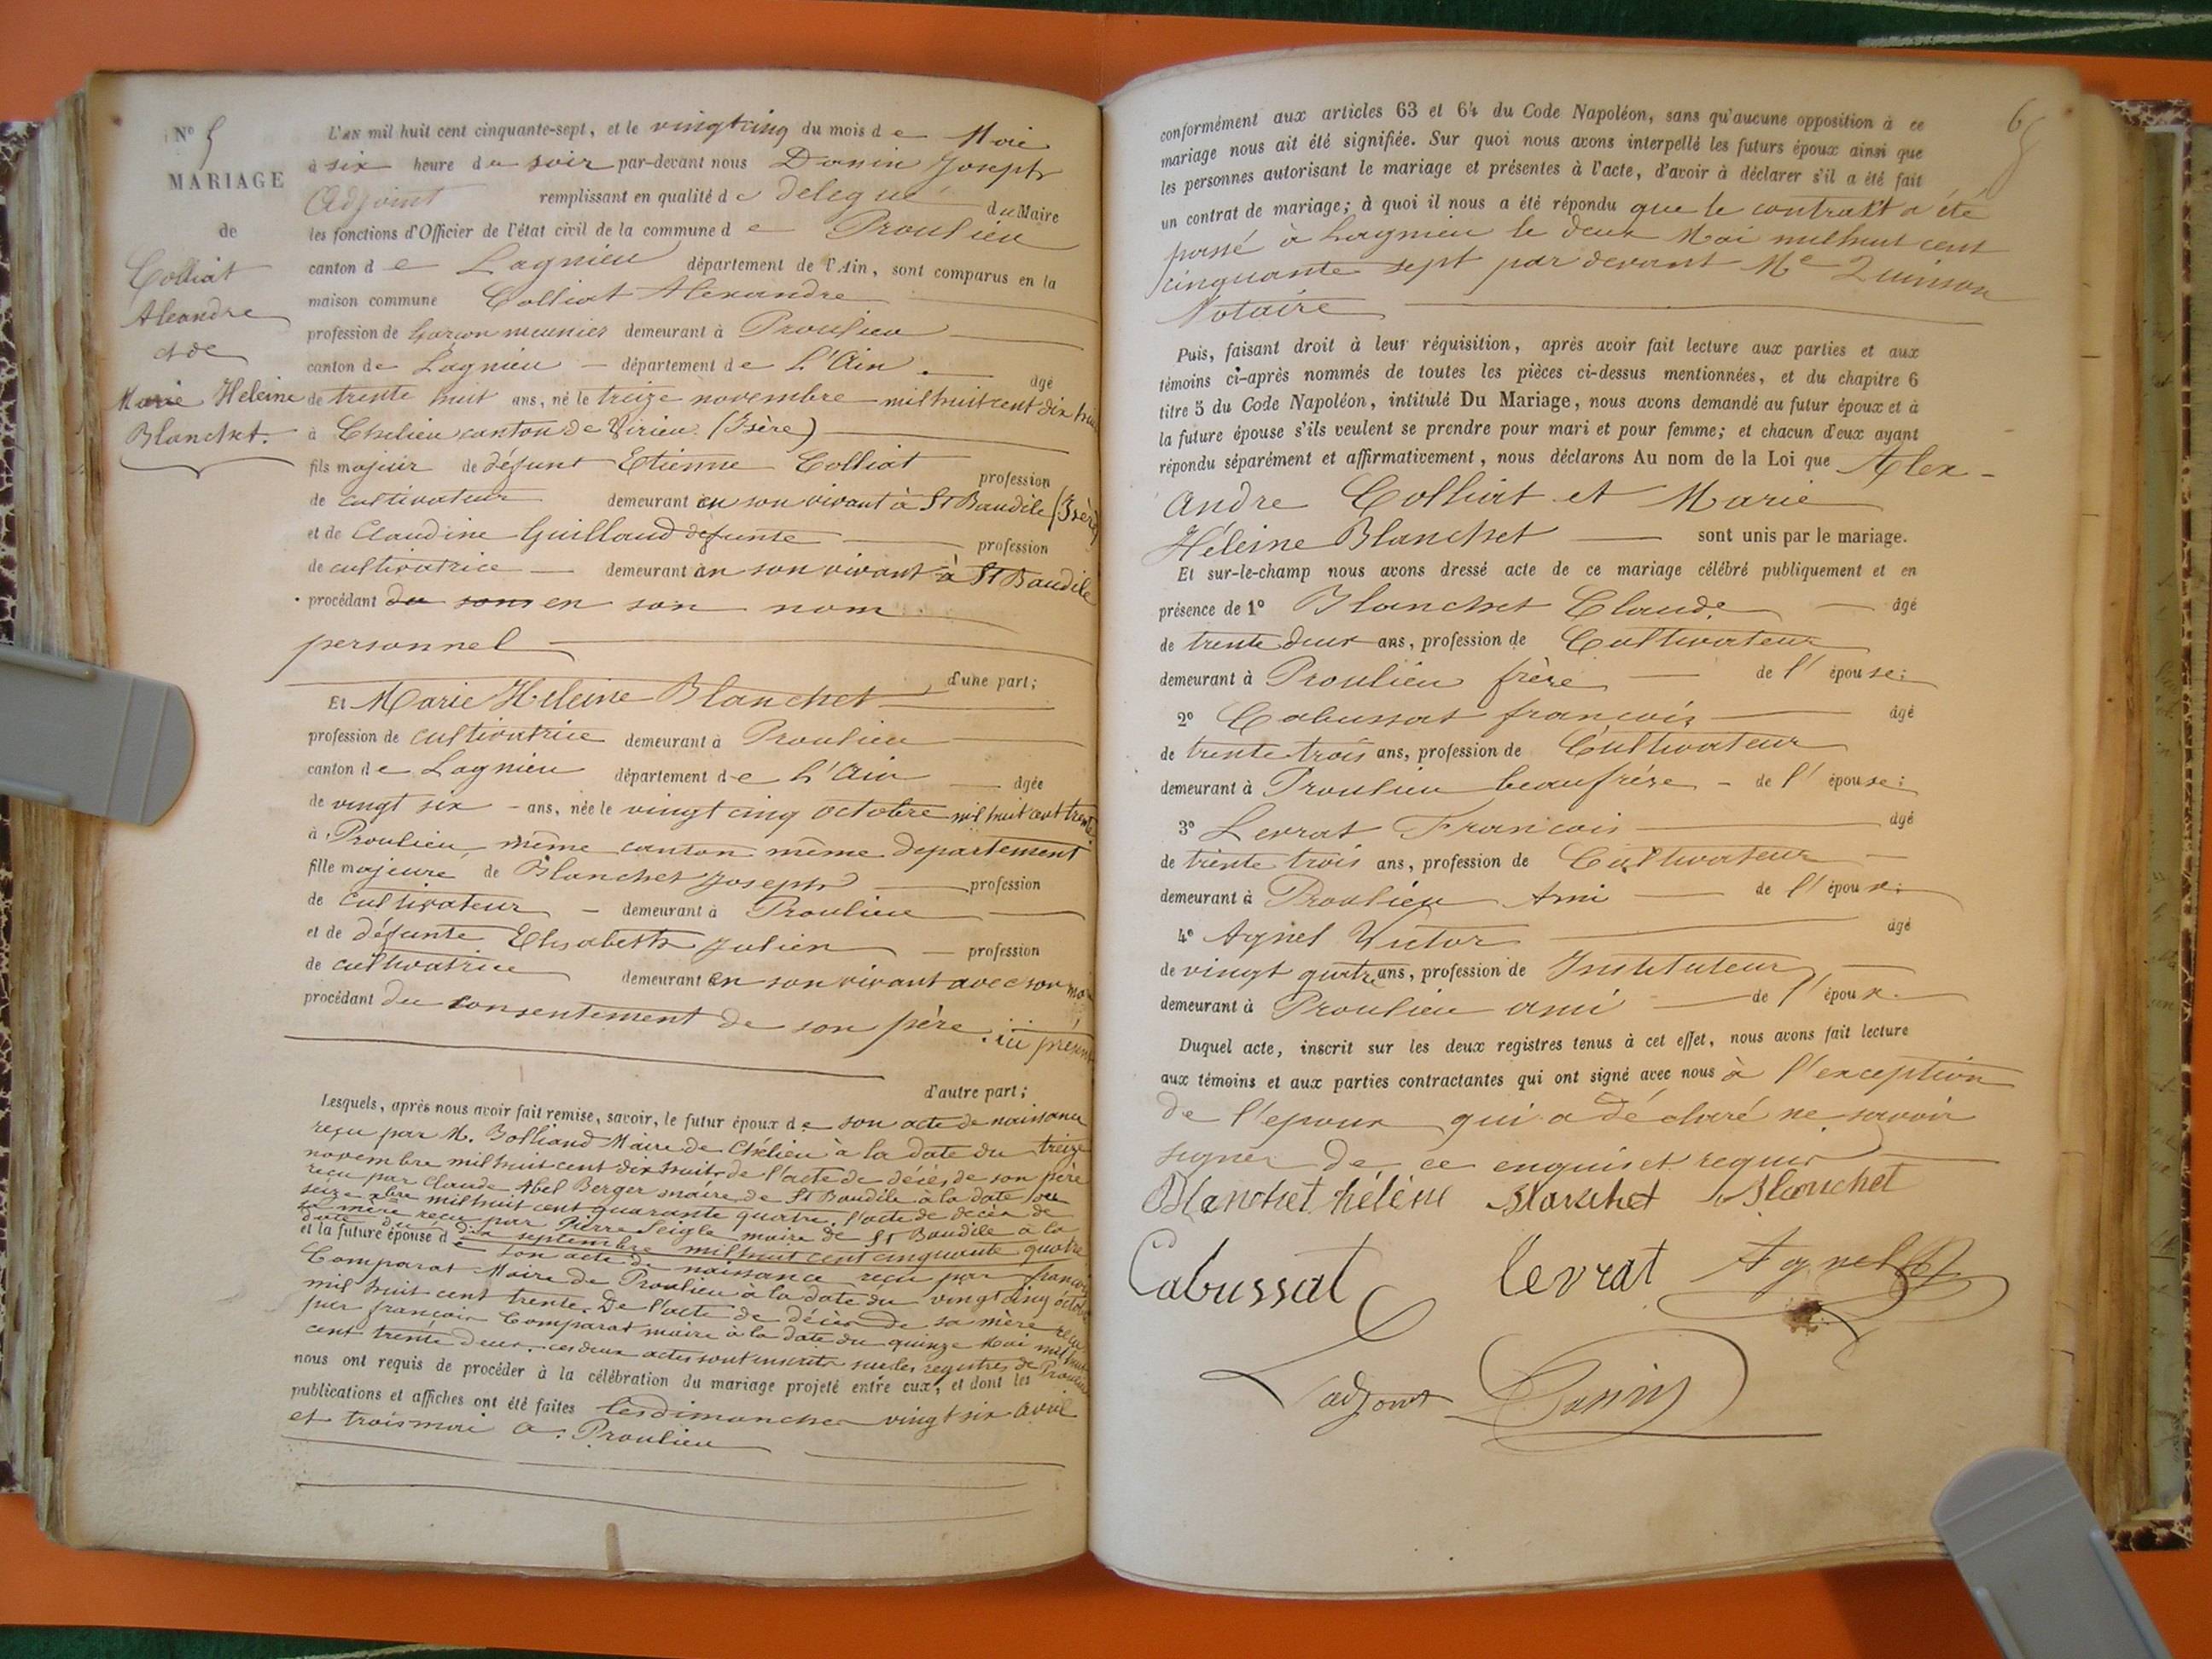 N° 5
MARIAGE
de
Colliat
Aleandre
et de
Marie Heleine
Blanchet.
L'AN mil huit cent cinquante-sept, et le vingt cinq du mois de Mai
à six heure du soir par-devant nous Donin Joseph
Adjoint remplissant en qualité de delegué du Maire
les fonctions d'Officier de l'état civil de la commune de Proulieu
canton de Lagnieu département de l'Ain, sont comparus en la
maison commune Colliat Alexandre
profession de Garçon meunier demeurant à Proulieu
canton de Lagnieu département de L'Ain. âgé
de trente huit ans, né le treize novembre mil huit cent dix huit
à Chelieu canton de Virieu (Isère)
fils majeur de défunt Etienne Colliat profession
de cultivateur demeurant en son vivant à St Baudile (Isère)
et de Claudine Guillaud defunte profession
de cultivatrice demeurant en son vivant à St Baudile
procédant du sons en son nom
personnel
d'une part;
Et Marie Heleine Blanchet
profession de cultivatrice demeurant à Proulieu
canton de Lagnieu département de L'Ain âgée
de vingt six ans, née le vingt cinq octobre mil huit cent trente
à Proulieu, même canton même departement
fille majeure de Blanchet Joseph profession
de cultivateur demeurant à Proulieu
et de défunte Elisabeth Julien profession
de cultivatrice demeurant en son vivant avec son mari
procédant du consentement de son père ici présent
d'autre part;
Lesquels, après nous avoir fait remise, savoir, le futur époux de son acte de naissance
reçu par M. Bolliand Maire de Chélieu à la date du treize
novembre mil huit cent dix huit, de l'acte de décès de son père
reçu par Claude Abel Berger maire de St Baudile à la date du
seize xbre mil huit cent quarante quatre. l'acte de decès de
sa mère reçu par Pierre Seigle maire de St Baudile à la
date du dix septembre mil huit cent cinquante quatre
et la future épouse de son acte de naissance reçu par françois
Comparat Maire de Proulieu à la date du vingt cinq octobre
mil huit cent trente. De l'acte de décès de sa mère reçu
par françois Comparat maire à la date du quinze Mai mil huit
cent trente deux. ces deux actes sont inscrits sur les registres de Proulieu
nous ont requis de procéder à la célébration du mariage projeté entre eux, et dont les
publications et affiches ont été faites les dimanches vingt six avril
et trois mai à Proulieu
65
conformément aux articles 63 et 64 du Code Napoléon, sans qu'aucune opposition à ce
mariage nous ait été signifiée. Sur quoi nous avons interpellé les futurs époux ainsi que
les personnes autorisant le mariage et présentes à l'acte, d'avoir à déclarer s'il a été fait
un contrat de mariage; à quoi il nous a été répondu que le contrat a été
passé à Lagnieu le deux Mai mil huit cent
cinquante sept par devant Me Quinson
Notaire
Puis, faisant droit à leur réquisition, après avoir fait lecture aux parties et aux
témoins ci-après nommés de toutes les pièces ci-dessus mentionnées, et du chapitre 6
titre 5 du Code Napoléon, intitulé Du Mariage, nous avons demandé au futur époux et à
la future épouse s'ils veulent se prendre pour mari et pour femme; et chacun d'eux ayant
répondu séparément et affirmativement, nous déclarons Au nom de la Loi que Alex-
andre Colliat et Marie
Héleine Blanchet sont unis par le mariage.
Et sur-le-champ nous avons dressé acte de ce mariage célébré publiquement et en
présence de 1° Blanchet Claude âgé
de trente deux ans, profession de Cultivateur
demeurant à Proulieu frère de l'épouse;
2° Cabussat françois âgé
de trente trois ans, profession de Cultivateur
demeurant à Proulieu beaufrére de l'épouse;
3° Levrat François âgé
de trente trois ans, profession de Cultivateur
demeurant à Proulieu Ami de l'époux;
4° Agnel Victor âgé
de vingt quatre ans, profession de Instituteur
demeurant à Proulieu ami de l'époux.
Duquel acte, inscrit sur les deux registres tenus à cet effet, nous avons fait lecture
aux témoins et aux parties contractantes qui ont signé avec nous à l'exception
de l'epoux qui a déclaré ne savoir
signer de ce enquis et requis
Blanchet hélène Blanchet Blanchet
Cabussat levrat Agnel
L'adjoint Donin